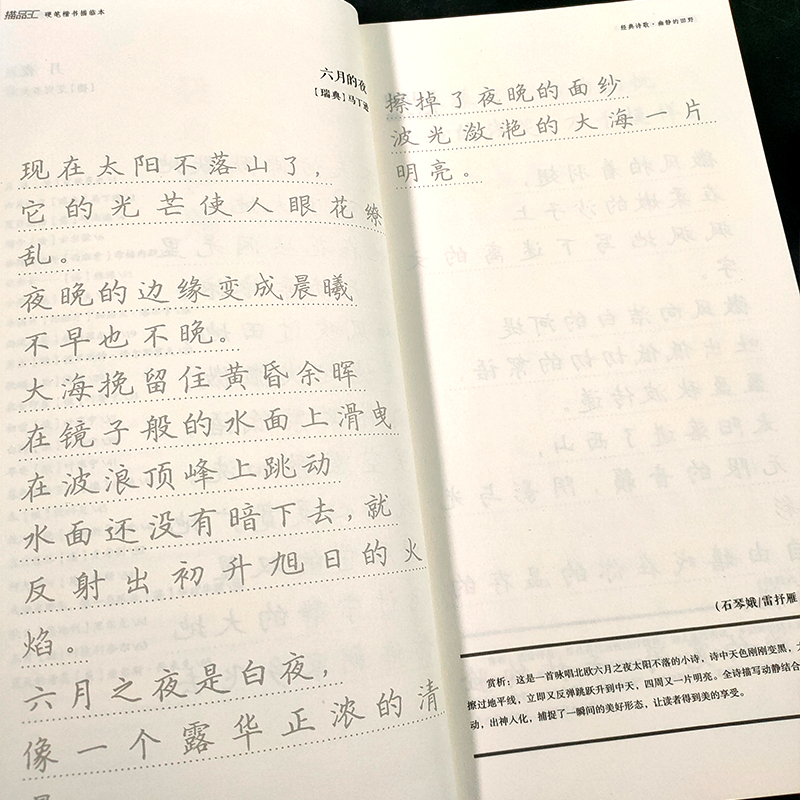 描品汇 硬笔楷书描临本
六月的夜
［瑞典］马丁逊
现在太阳不落山了，
它的光芒使人眼花缭
乱。
夜晚的边缘变成晨曦
不早也不晚。
大海挽留住黄昏余晖
在镜子般的水面上滑曳
在波浪顶峰上跳动
水面还没有暗下去，就
反射出初升旭日的火
焰。
六月之夜是白夜，
像一个露华正浓的清
经典诗歌·幽静的田野
擦掉了夜晚的面纱
波光潋滟的大海一片
明亮。
（石琴娥/雷抒雁
赏析：这是一首咏唱北欧六月之夜太阳不落的小诗，诗中天色刚刚变黑，
擦过地平线，立即又反弹跳跃升到中天，四周又一片明亮。全诗描写动静结合
动，出神入化，捕捉了一瞬间的美好形态，让读者得到美的享受。